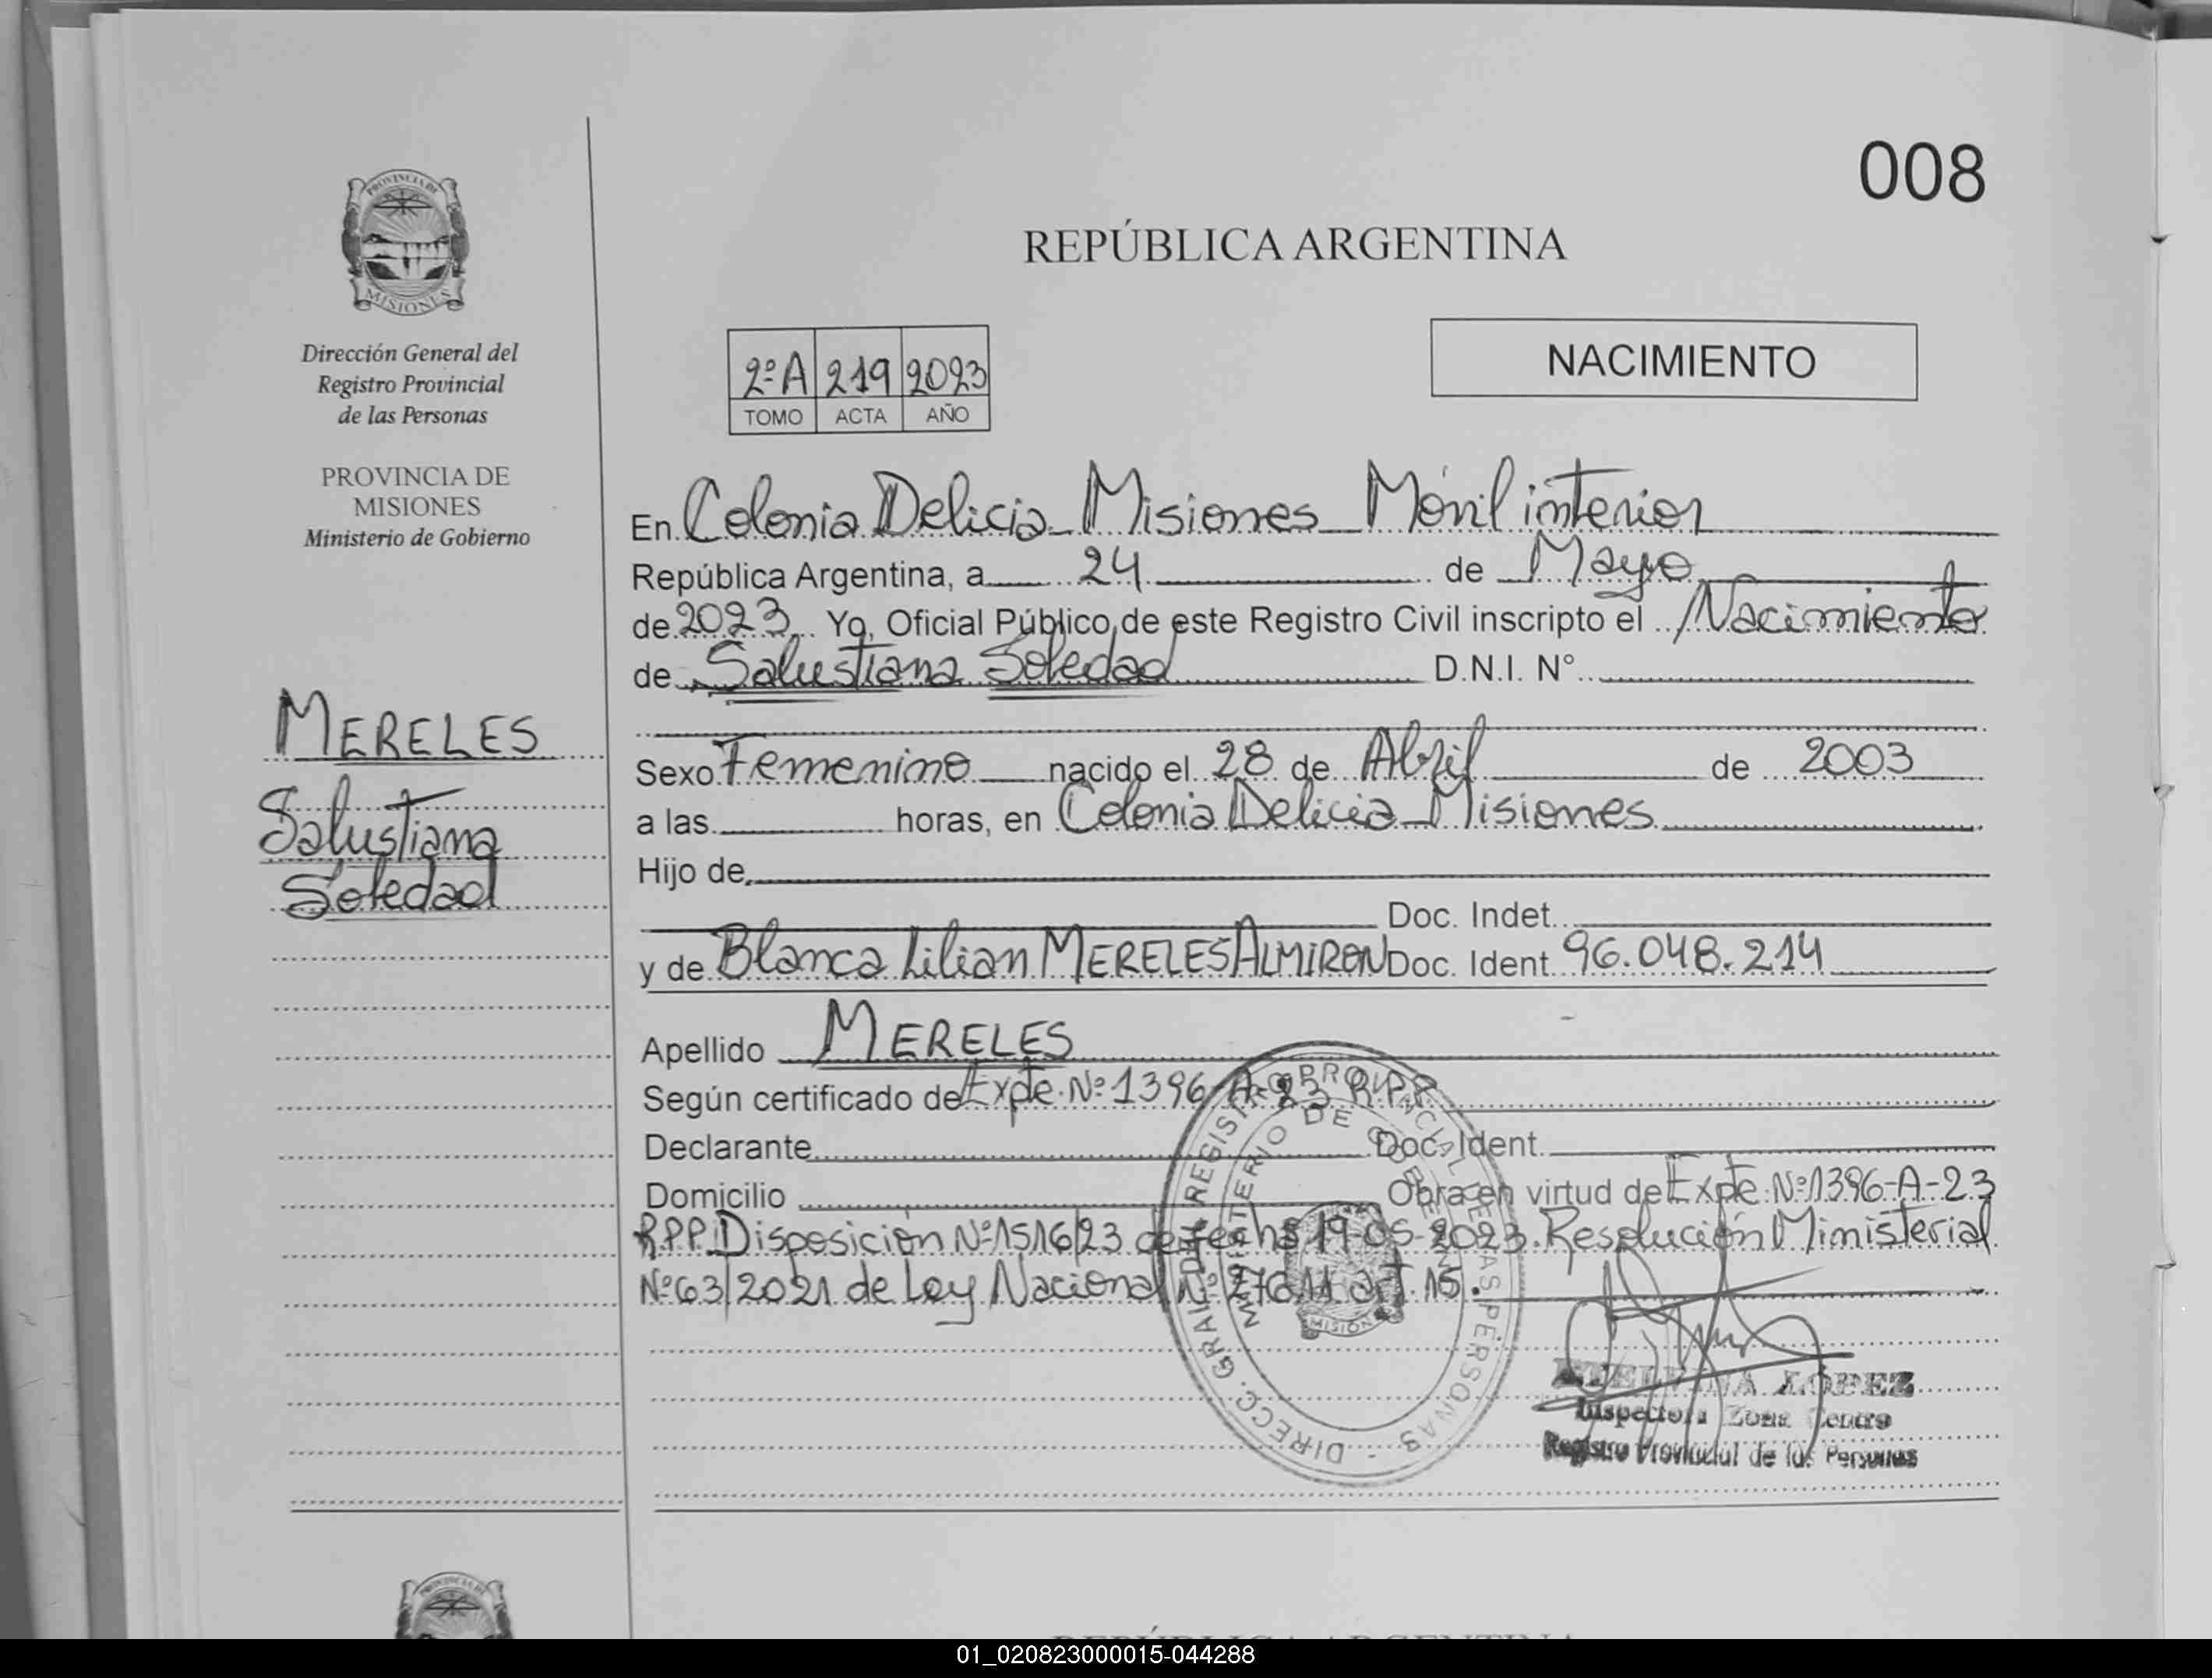 008
PROVINCIA DE
MISIONES
REPÚBLICA ARGENTINA
Dirección General del
Registro Provincial
de las Personas
PROVINCIA DE
MISIONES
Ministerio de Gobierno
2ºA 219 2023
TOMO ACTA AÑO
NACIMIENTO
MERELES
Salustiana
Soledad
En Colonia Delicia Misiones Móvil interior
República Argentina, a 24 de Mayo
de 2023 Yo, Oficial Público de este Registro Civil inscripto el Nacimiento
de Salustiana Soledad D.N.I. N°
Sexo Femenino nacido el 28 de Abril de 2003
a las horas, en Colonia Delicia Misiones
Hijo de
Doc. Indet.
y de Blanca Lilian MERELES ALMIRON Doc. Ident. 96.048.214
Apellido MERELES
Según certificado de Expte. Nº 1396-A-23 R.P.P.
Declarante Doc. Ident.
Domicilio Obra en virtud de Expte. Nº 1396-A-23
R.P.P. Disposición Nº 1516/23 de fecha 19-05-2023. Resolución Ministerial
Nº 63/2021 de Ley Nacional Nº 27611 art. 15.
DIRECC. GRAL. DEL REGISTRO PROVINCIAL DE LAS PERSONAS
MINISTERIO DE GOBIERNO
MISIONES
LOPEZ
Inspectora Zona Centro
Registro Provincial de las Personas
01_020823000015-044288